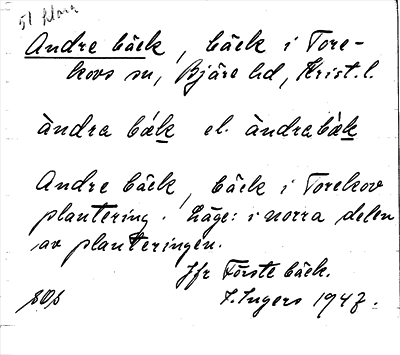 51 klara
Andre bäck, bäck i Tore-
kovs sn, Bjäre hd, Krist. l.
àndra bæ̀k el. àndrabæ̀k
Andre bäck, bäck i Torekov
plantering. Läge: i norra delen
av planteringen.
Jfr Förste bäck.
I. Ingers 1947.